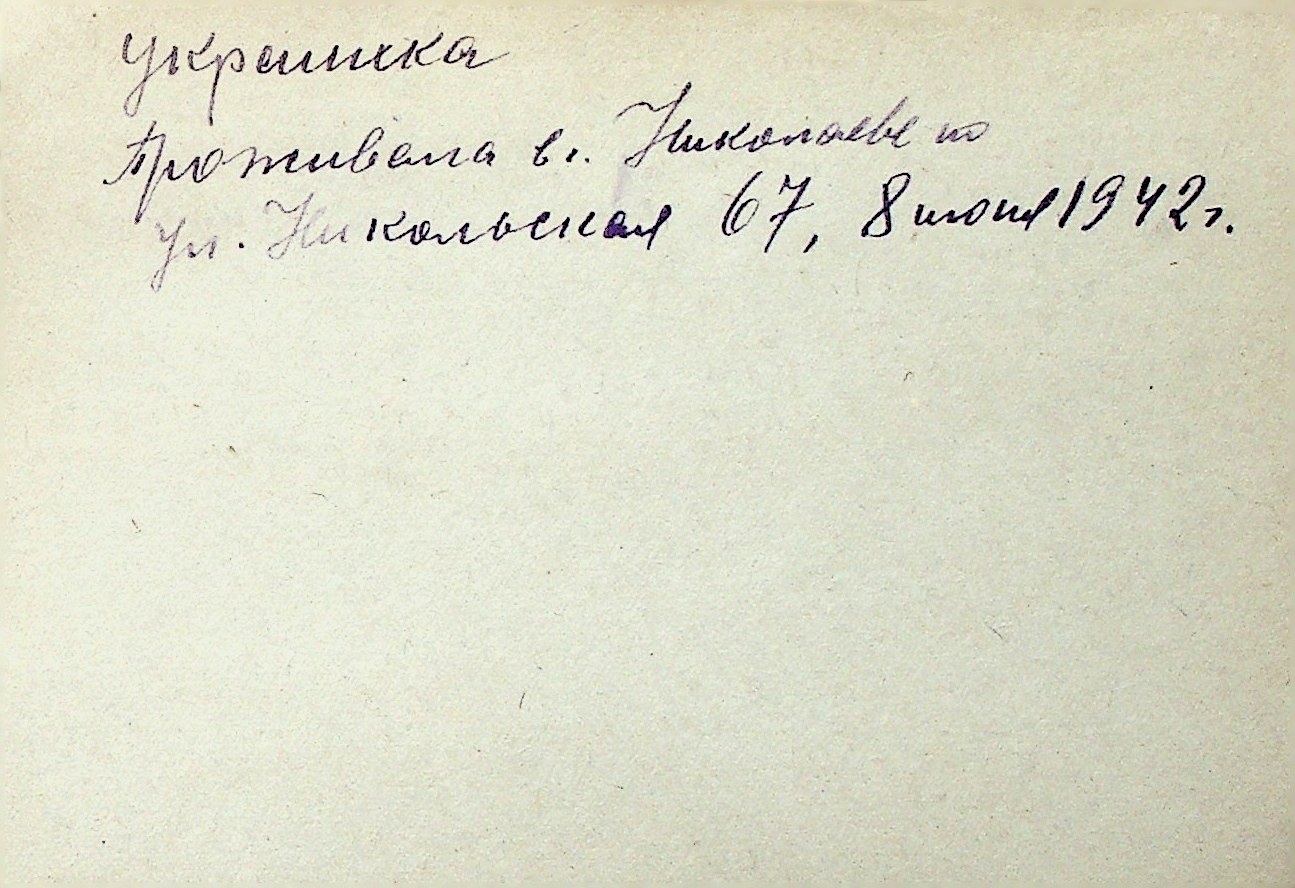 украинка
Проживала в г. Николаеве по
ул. Никольская 67, 8 июня 1942 г.